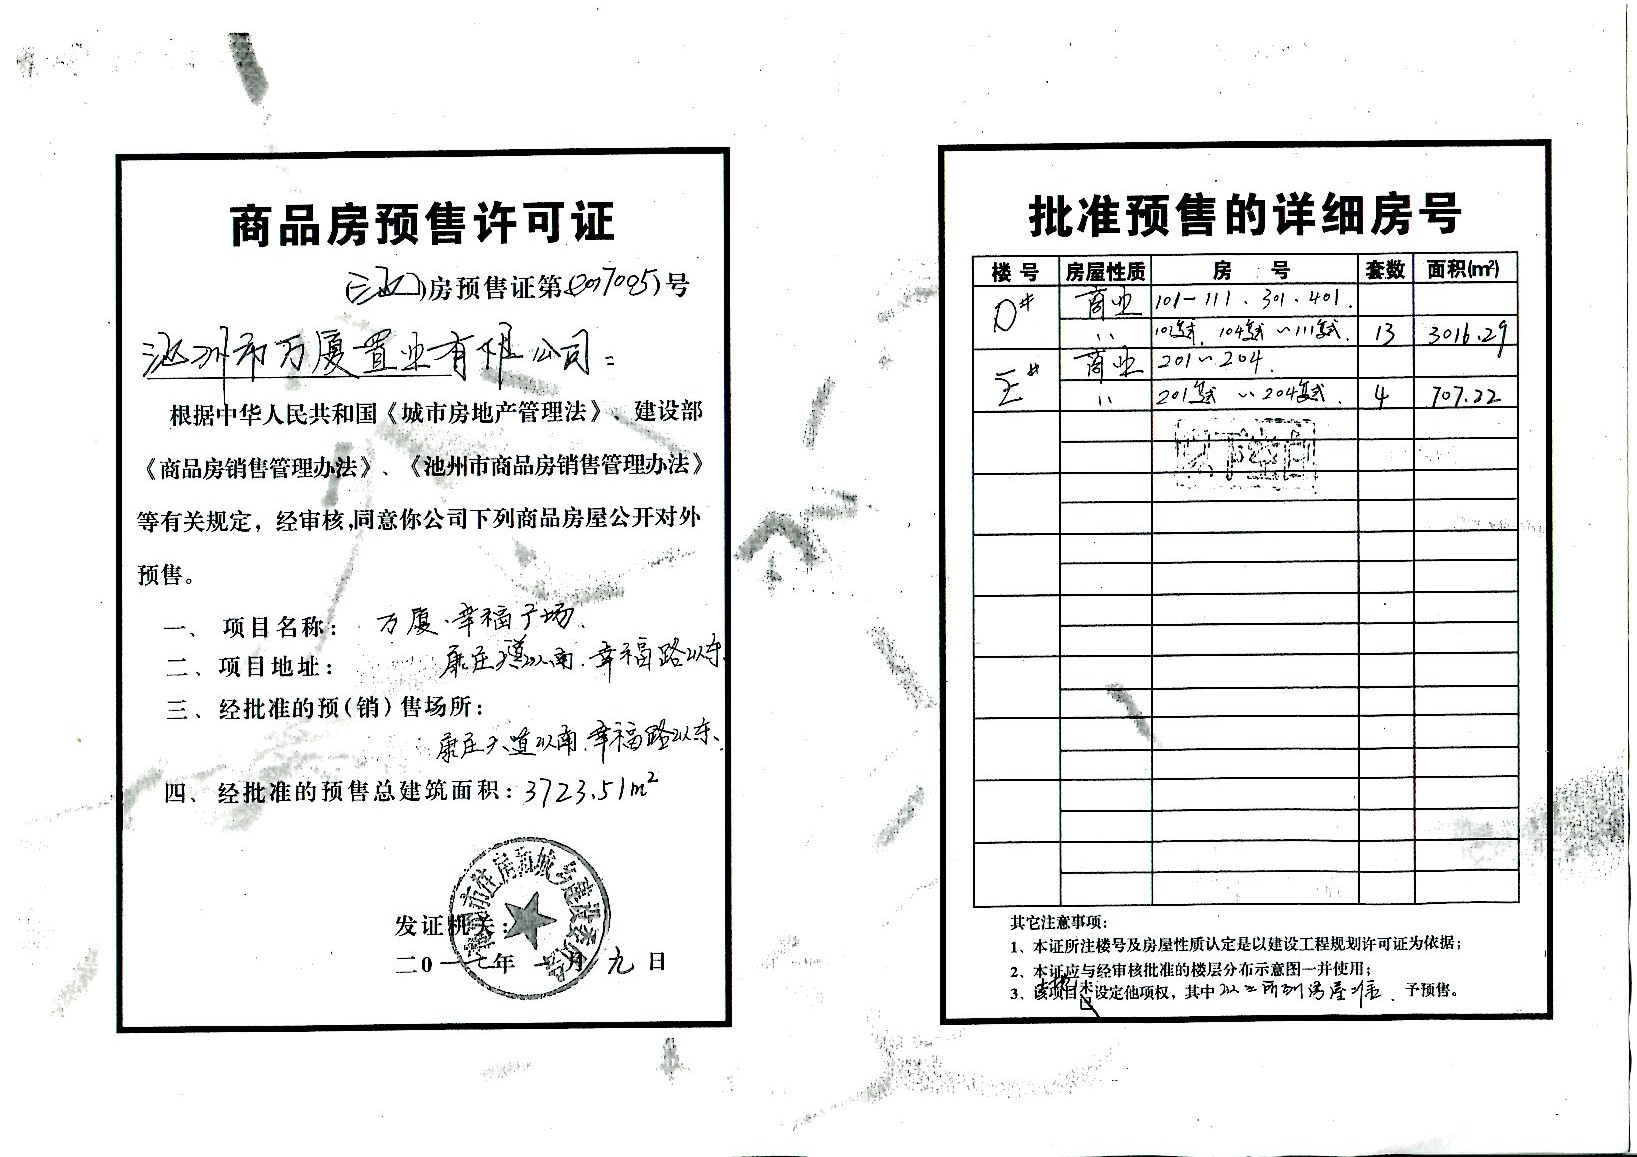 商品房预售许可证
(池)房预售证第(2017005)号
池州市万厦置业有限公司:
根据中华人民共和国《城市房地产管理法》、建设部
《商品房销售管理办法》、《池州市商品房销售管理办法》
等有关规定，经审核,同意你公司下列商品房屋公开对外
预售。
一、项目名称: 万厦·幸福广场.
二、项目地址: 康庄大道以南.幸福路以东.
三、经批准的预(销)售场所:
康庄大道以南.幸福路以东.
四、经批准的预售总建筑面积: 3723.51m²
池州市住房和城乡建设委员会
发证机关:
二0一七年一月九日
批准预售的详细房号
楼号 房屋性质 房号 套数 面积(m²)
D# 商业 101-111、301、401.
〃 复式 13 3016.29
E# 商业 201～204.
〃 201复式～204复式. 4 707.22
其它注意事项:
1、本证所注楼号及房屋性质认定是以建设工程规划许可证为依据;
2、本证应与经审核批准的楼层分布示意图一并使用;
3、该项目土地未设定他项权，其中以上所列房屋准予预售。